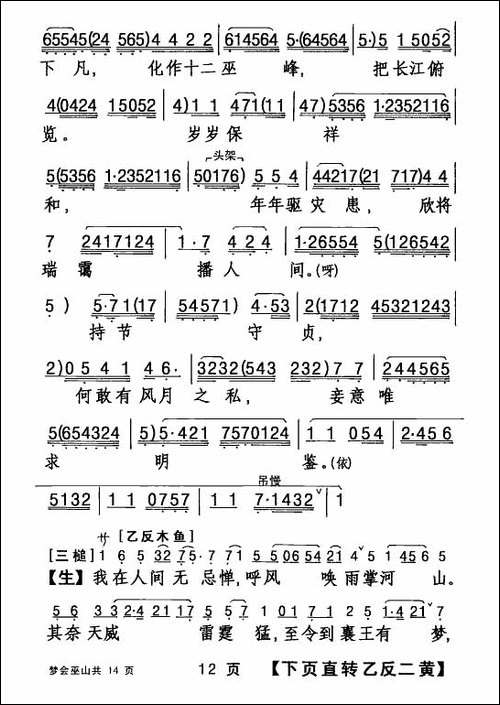 65545(24 565)4 4 2 2 | 614564 5·(64564 | 5·)5 1 5052
下凡， 化作十二巫 峰， 把长江俯
4(0424 15052 | 4)1 1 471(11 | 47)5356 1·2352116
览。 岁岁保 祥
5(5356 1·2352116 | 头架 50176) 5 5 4 | 44217(21 717)4 4
和， 年年驱灾患，欣将
7 2417124 | 1·7 4 2 4 | 1·26554 5(126542
瑞霭 播人 间。(呀)
5) 5·71(17 | 54571) 4·53 | 2(1712 45321243
持节 守 贞，
2)0 5 4 1 4 6· | 3232(543 232)7 7 | 244565
何敢有风月之私， 妾意唯
5(654324 | 5)5·421 7570124 | 1 1 054 | 2·456
求 明 鉴。(依)
5132 | 1 1 0757 | 1 1 吊慢 7·1432ˇ | 1
サ [乙反木鱼]
[三槌] 1 6 5 32 75· 7 71 5 5 06 54 214ˇ5 1 456 5
【生】我在人间无 忌惮，呼风 唤雨掌河 山。
5 6 3 3 2·4 2 1 1 1 7 5 5 7· 1 0 1 7 1 2 5 2 1·4 2 1ˇ7
其奈天威 雷霆 猛，至令到襄王有 梦，
梦会巫山共 14 页 12 页 【下页直转乙反二黄】